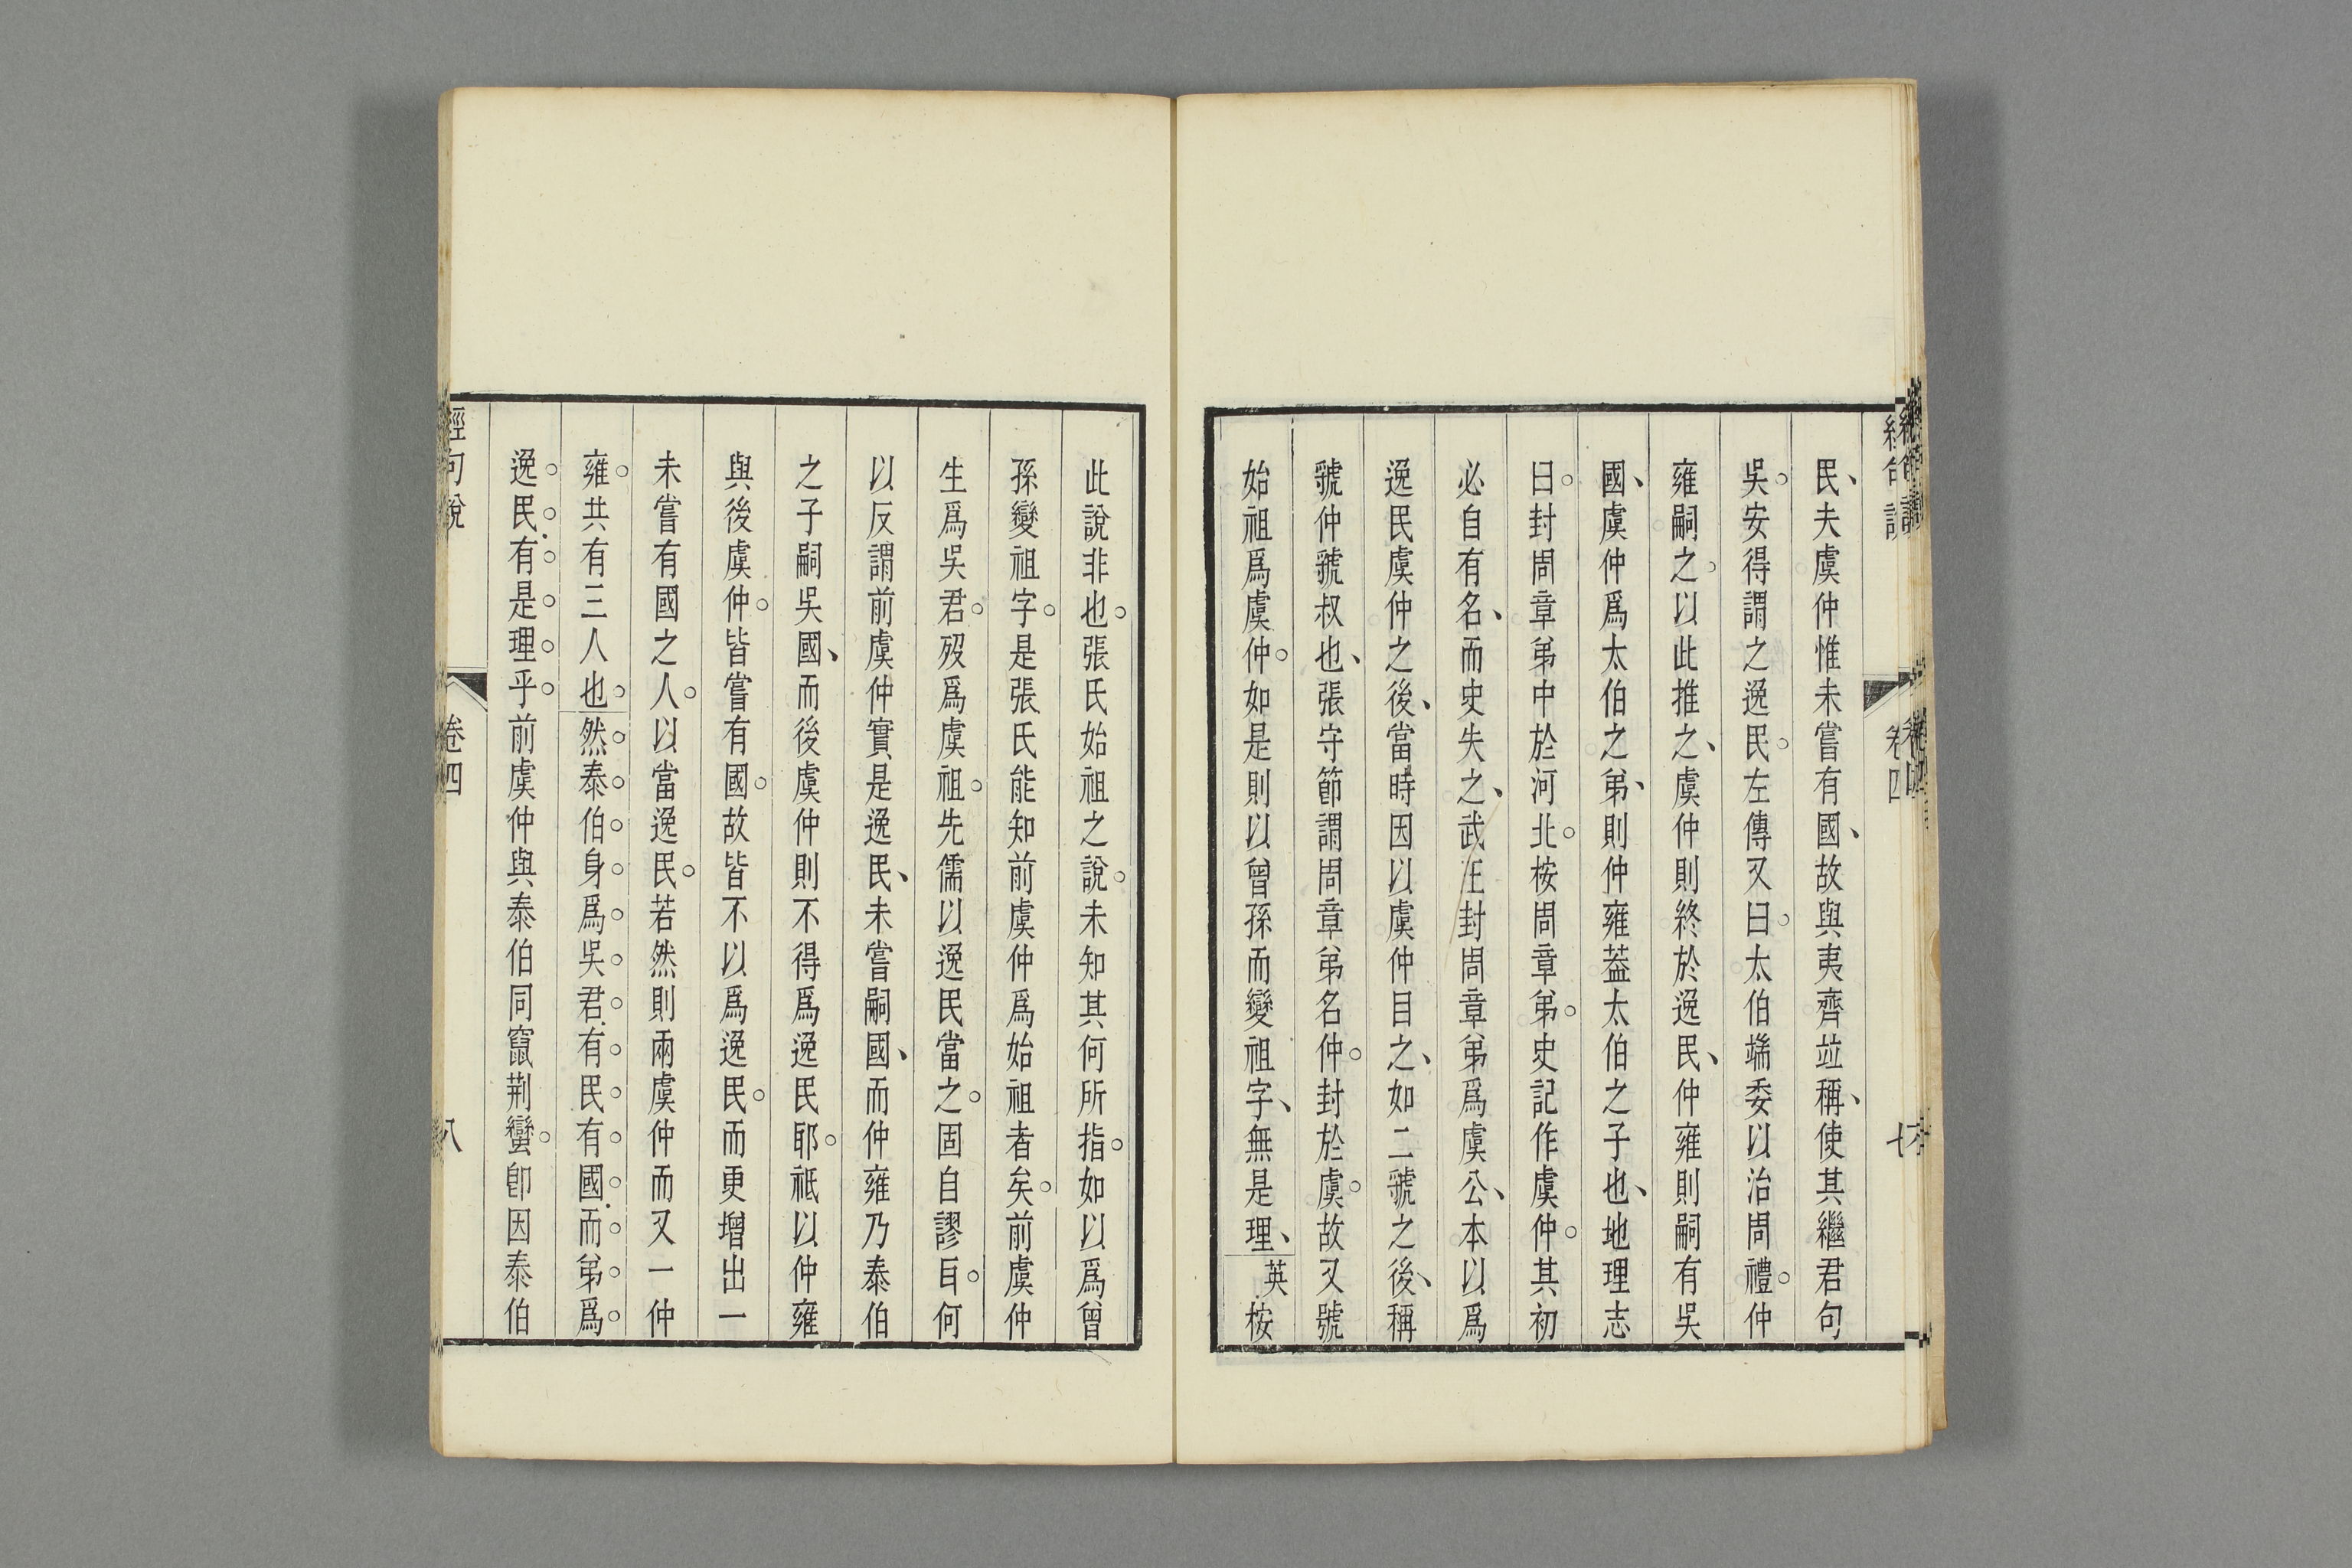 民、夫虞仲惟未嘗有國、故與夷齊竝稱、使其繼君句
吳。安得謂之逸民。左傳又曰。太伯端委以治周禮。仲
雍嗣之。以此推之、虞仲則終於逸民、仲雍則嗣有吳
國、虞仲爲太伯之弟、則仲雍葢太伯之子也、地理志
曰。封周章弟中於河北。桉周章弟。史記作虞仲。其初
必自有名、而史失之、武王封周章弟爲虞公、本以爲
逸民虞仲之後、當時因以虞仲目之、如二虢之後、稱
虢仲虢叔也、張守節謂周章弟名仲。封於虞。故又號
始祖爲虞仲。如是則以曾孫而變祖字、無是理、英桉
此說非也。張氏始祖之說。未知其何所指。如以爲曾
孫變祖字。是張氏能知前虞仲爲始祖者矣。前虞仲
生爲吳君。歿爲虞祖。先儒以逸民當之。固自謬𦣝。何
以反謂前虞仲實是逸民、未嘗嗣國、而仲雍乃泰伯
之子嗣吳國、而後虞仲則不得爲逸民耶。祇以仲雍
與後虞仲。皆嘗有國。故皆不以爲逸民。而更增出一
未嘗有國之人。以當逸民。若然則兩虞仲而又一仲
雍。共有三人也。然泰伯身爲吳君。有民有國。而弟爲
逸民。有是理乎。前虞仲與泰伯同竄荆蠻。卽因泰伯
經句說 卷四 八